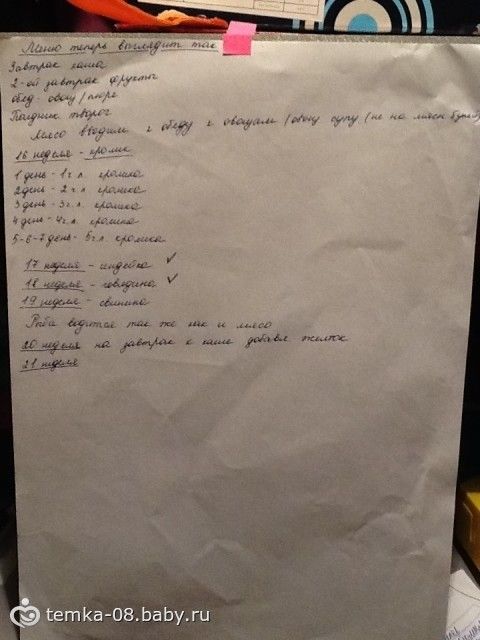 Меню теперь выглядит так
Завтрак каша
2-ой завтрак фрукты
обед - овощ/пюре
Полдник творог
Мясо вводим в обеду с овощами/овощ супу (не на мясн бульоне
16 неделя - кролик
1 день - 1 ч.л. кролика
2 день - 2 ч.л. кролика
3 день - 3 ч.л. кролика
4 день - 4 ч.л. кролика
5-6-7 день - 5 ч.л. кролика
17 неделя - индейка ✓
18 неделя - говядина ✓
19 неделя - свинина
Рыба водится так же как и мясо
20 неделя на завтрак к каше добавл. желток
21 неделя
temka-08.baby.ru